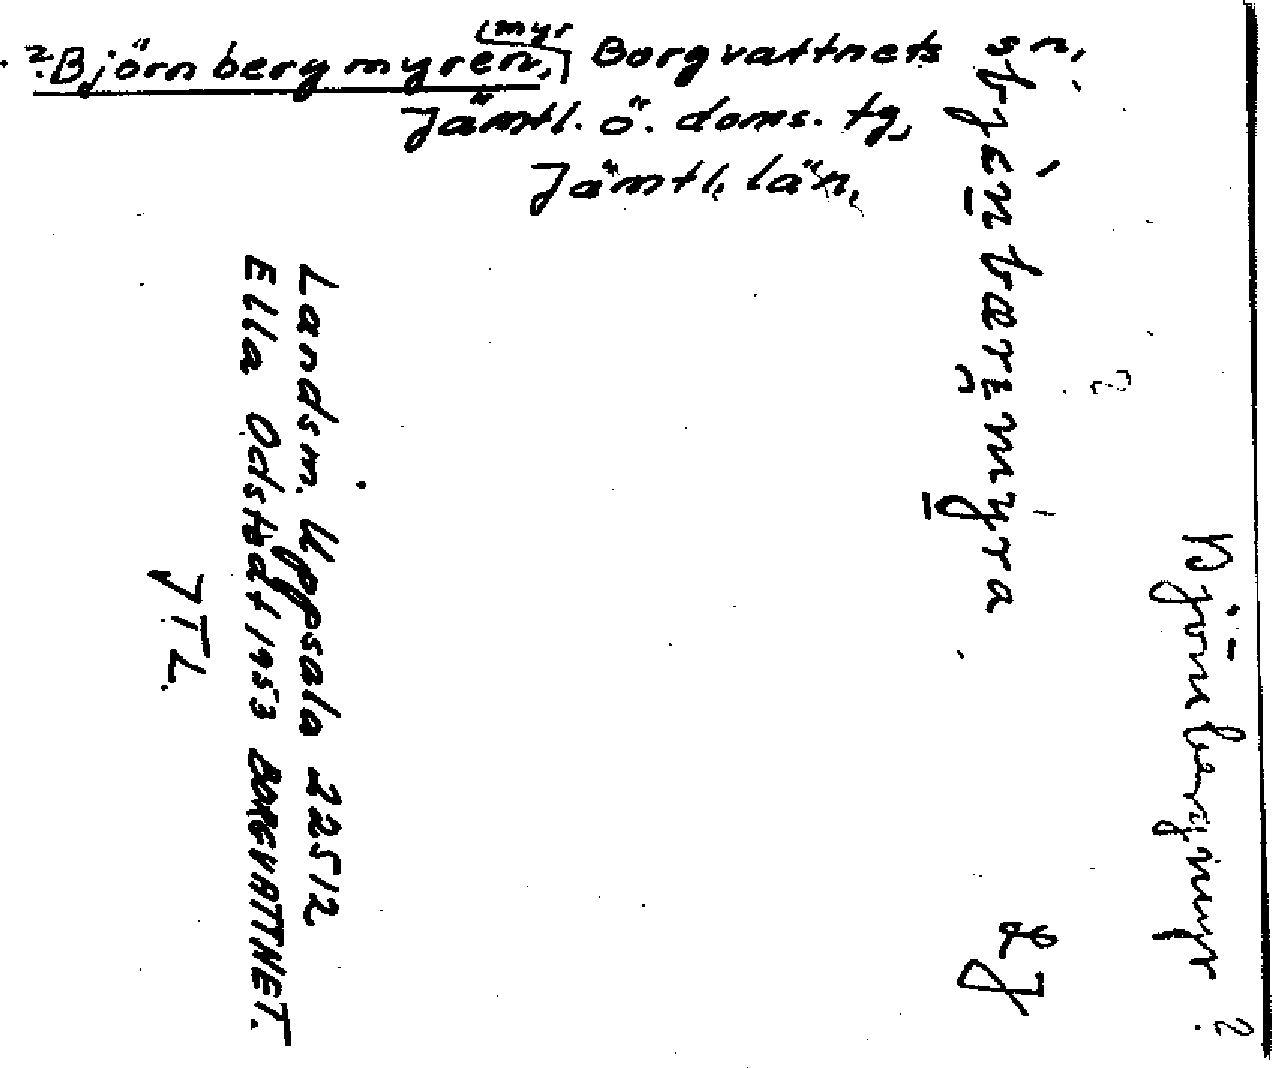 ?Björnbergmyren, (myr) Borgvattnets sn,
Jämtl. ö. doms. tg,
Jämtl. län,
?
Björnbergmyr ?
Landsm. Uppsala 22512
Ella Odstedt 1953 BORGVATTNET.
JTL.